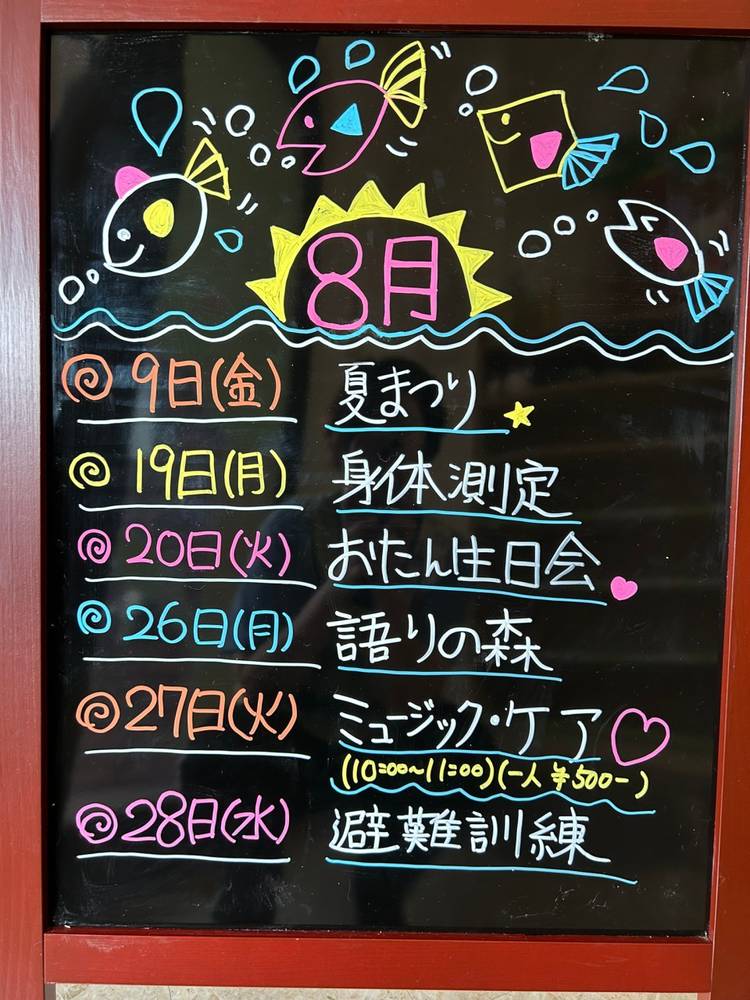 8月
9日(金) 夏まつり
19日(月) 身体測定
20日(火) おたん生日会
26日(月) 語りの森
27日(火) ミュージック・ケア
(10:00~11:00)(一人¥500-)
28日(水) 避難訓練